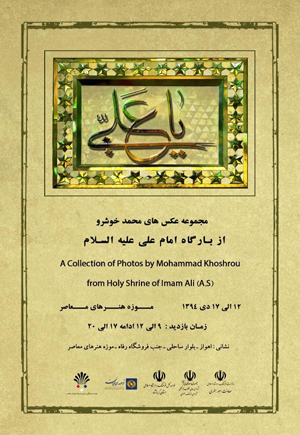 یا علی
مجموعه عکس های محمد خوشرو
از بارگاه امام علی علیه السلام
A Collection of Photos by Mohammad Khoshrou
from Holy Shrine of Imam Ali (A.S)
١٢ الی ١٧ دی ١٣٩٤ موزه هنرهای معاصر
زمان بازدید : ٩ الی ١٢ ادامه ١٧ الی ٢٠
نشانی : اهواز - بلوار ساحلی - جنب فروشگاه رفاه - موزه هنرهای معاصر